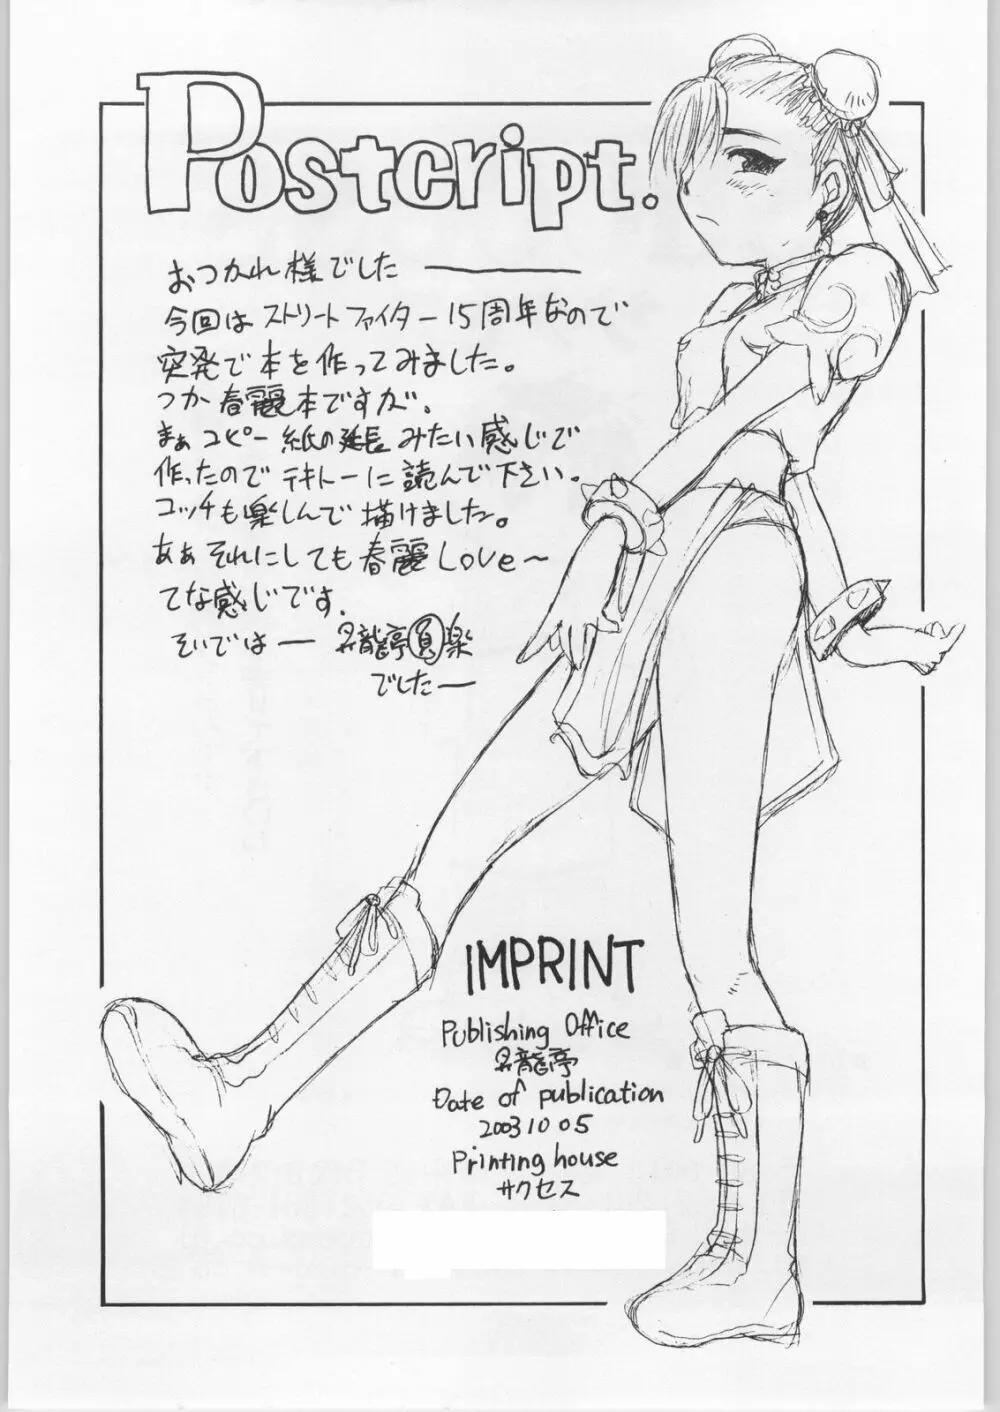 Postcript.
おつかれ様でした――
今回はストリートファイター15周年なので
突発で本を作ってみました。
つか春麗本ですが、
まぁコピー紙の延長みたい感じで
作ったのでテキトーに読んで下さい。
コッチも楽しんで描けました。
あぁそれにしても春麗Love～
てな感じです。
そいでは― 昇龍亭楽
でしたー
IMPRINT
Publishing Office
昇龍亭
Date of publication
2003 10 05
Printing house
サクセス